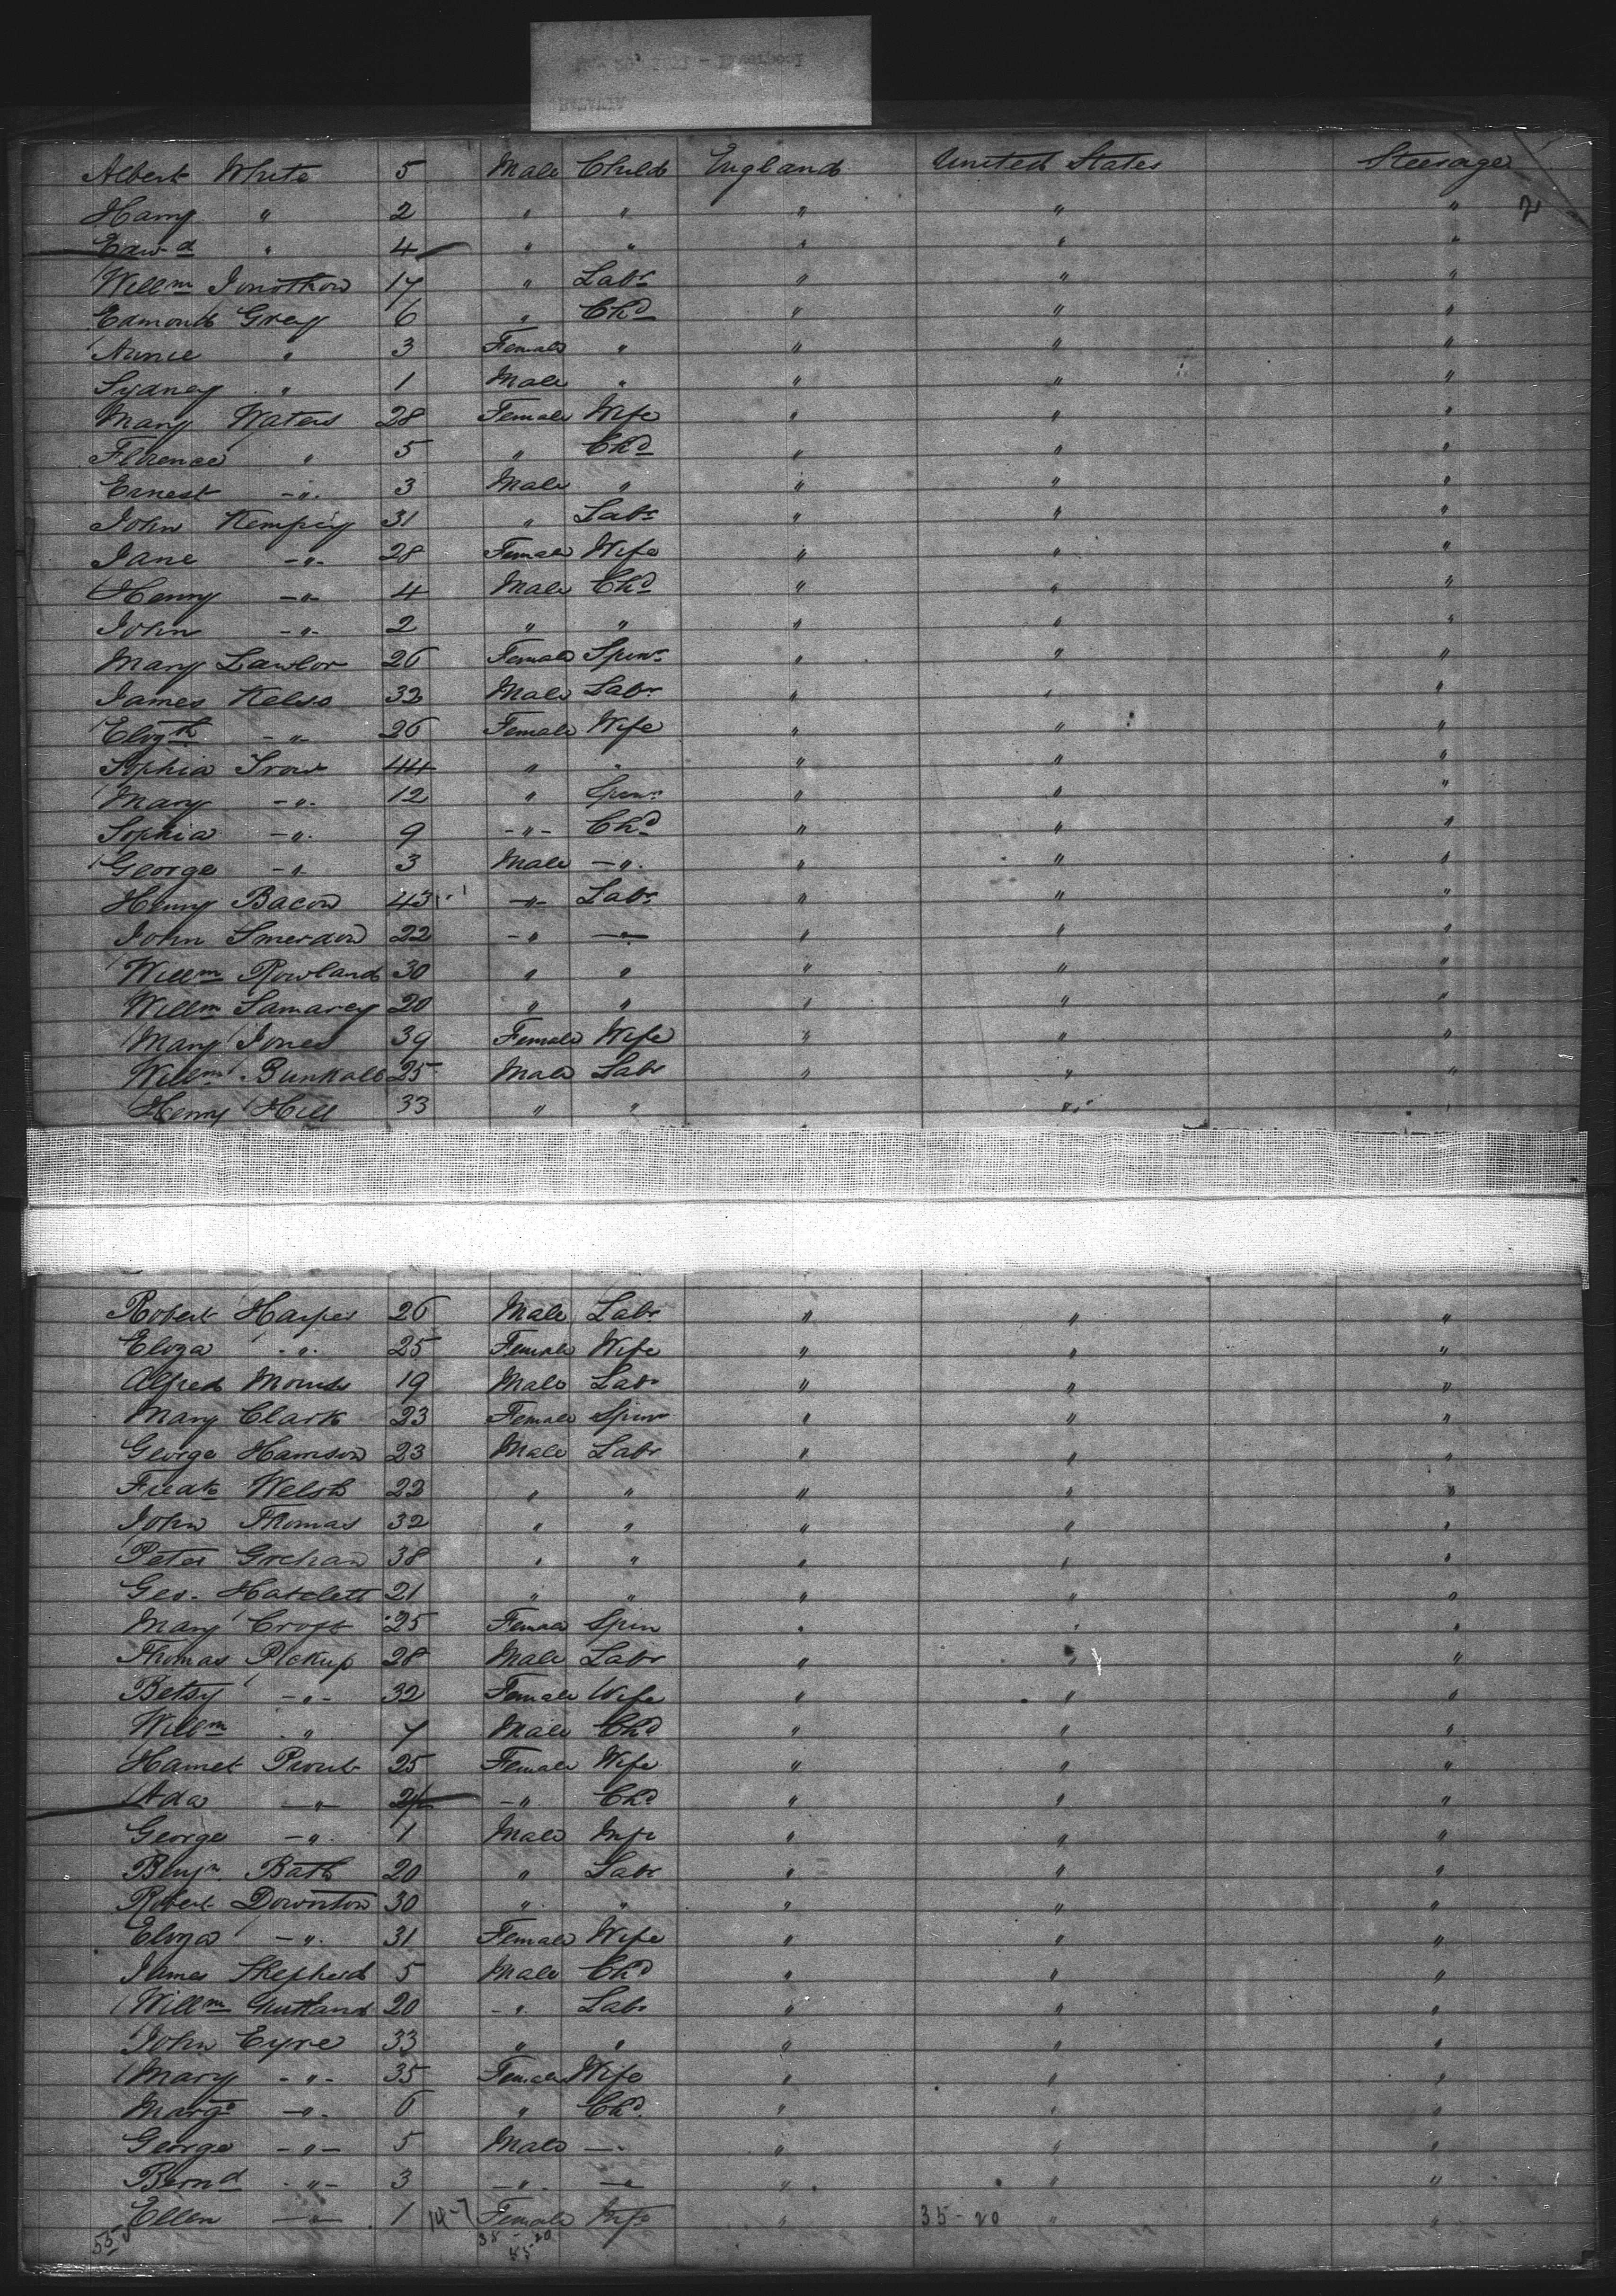 Albert White 5 Male Child England United States Steerage
Harry " 2 " " " " " 2
Edwd " 4 " " " " "
Willm Jonothon 17 " Labr " " "
Edmond Grey 6 " Chd " " "
Annie " 3 Female " " " "
Sydney " 1 Male " " " "
Mary Waters 28 Female Wife " " "
Florence " 5 " Chd " " "
Ernest " 3 Male " " " "
John Kempey 31 " Labr " " "
Jane " 28 Female Wife " " "
Henry " 4 Male Chd " " "
John " 2 " " " " "
Mary Lawlor 26 Female Spinr " " "
James Kelso 32 Male Labr " " "
Elizth " 26 Female Wife " " "
Sophia Trow 44 " " " " "
Mary " 12 " Spinr " " "
Sophia " 9 " Chd " " "
George " 3 Male " " " "
Henry Bacon 43 " Labr " " "
John Smerdon 22 " " " " "
Willm Rowland 30 " " " " "
Willm Samarey 20 " " " " "
Mary Jones 39 Female Wife " " "
Willm 25 Male Labr " " "
Henry Hill 33 " " " "
Robert Harper 26 Male Labr " " "
Eliza " 25 Female Wife " " "
Alfred Morris 19 Male Labr " " "
Mary Clark 23 Female Spinr " " "
George Harrison 23 Male Labr " " "
Fredk Welsh 22 " " " " "
John Thomas 32 " " " " "
Peter Grehan 38 " " " " "
Geo. Hatclett 21 " " " " "
Mary Croft 25 Female Spin " " "
Thomas Pickup 28 Male Labr " " "
Betsy " 32 Female Wife " " "
Willm " 7 Male Chd " " "
Harriet Prout 25 Female Wife " " "
Ada " " Chd " " "
George " 1 Male Inft " " "
Benjn. Bath 20 " Labr " " "
Robert Downton 30 " " " " "
Eliza " 31 Female Wife " " "
James Shepherd 5 Male Chd " " "
Willm 20 " Labr " " "
John Eyre 33 " " " " "
Mary " 35 Female Wife " " "
Margt " 6 " Chd " " "
George " 5 Male " " " "
Bernd " 3 " " " " "
Ellen " 1 14-7 Female Inft " 35-20 " "
55 35-20
55